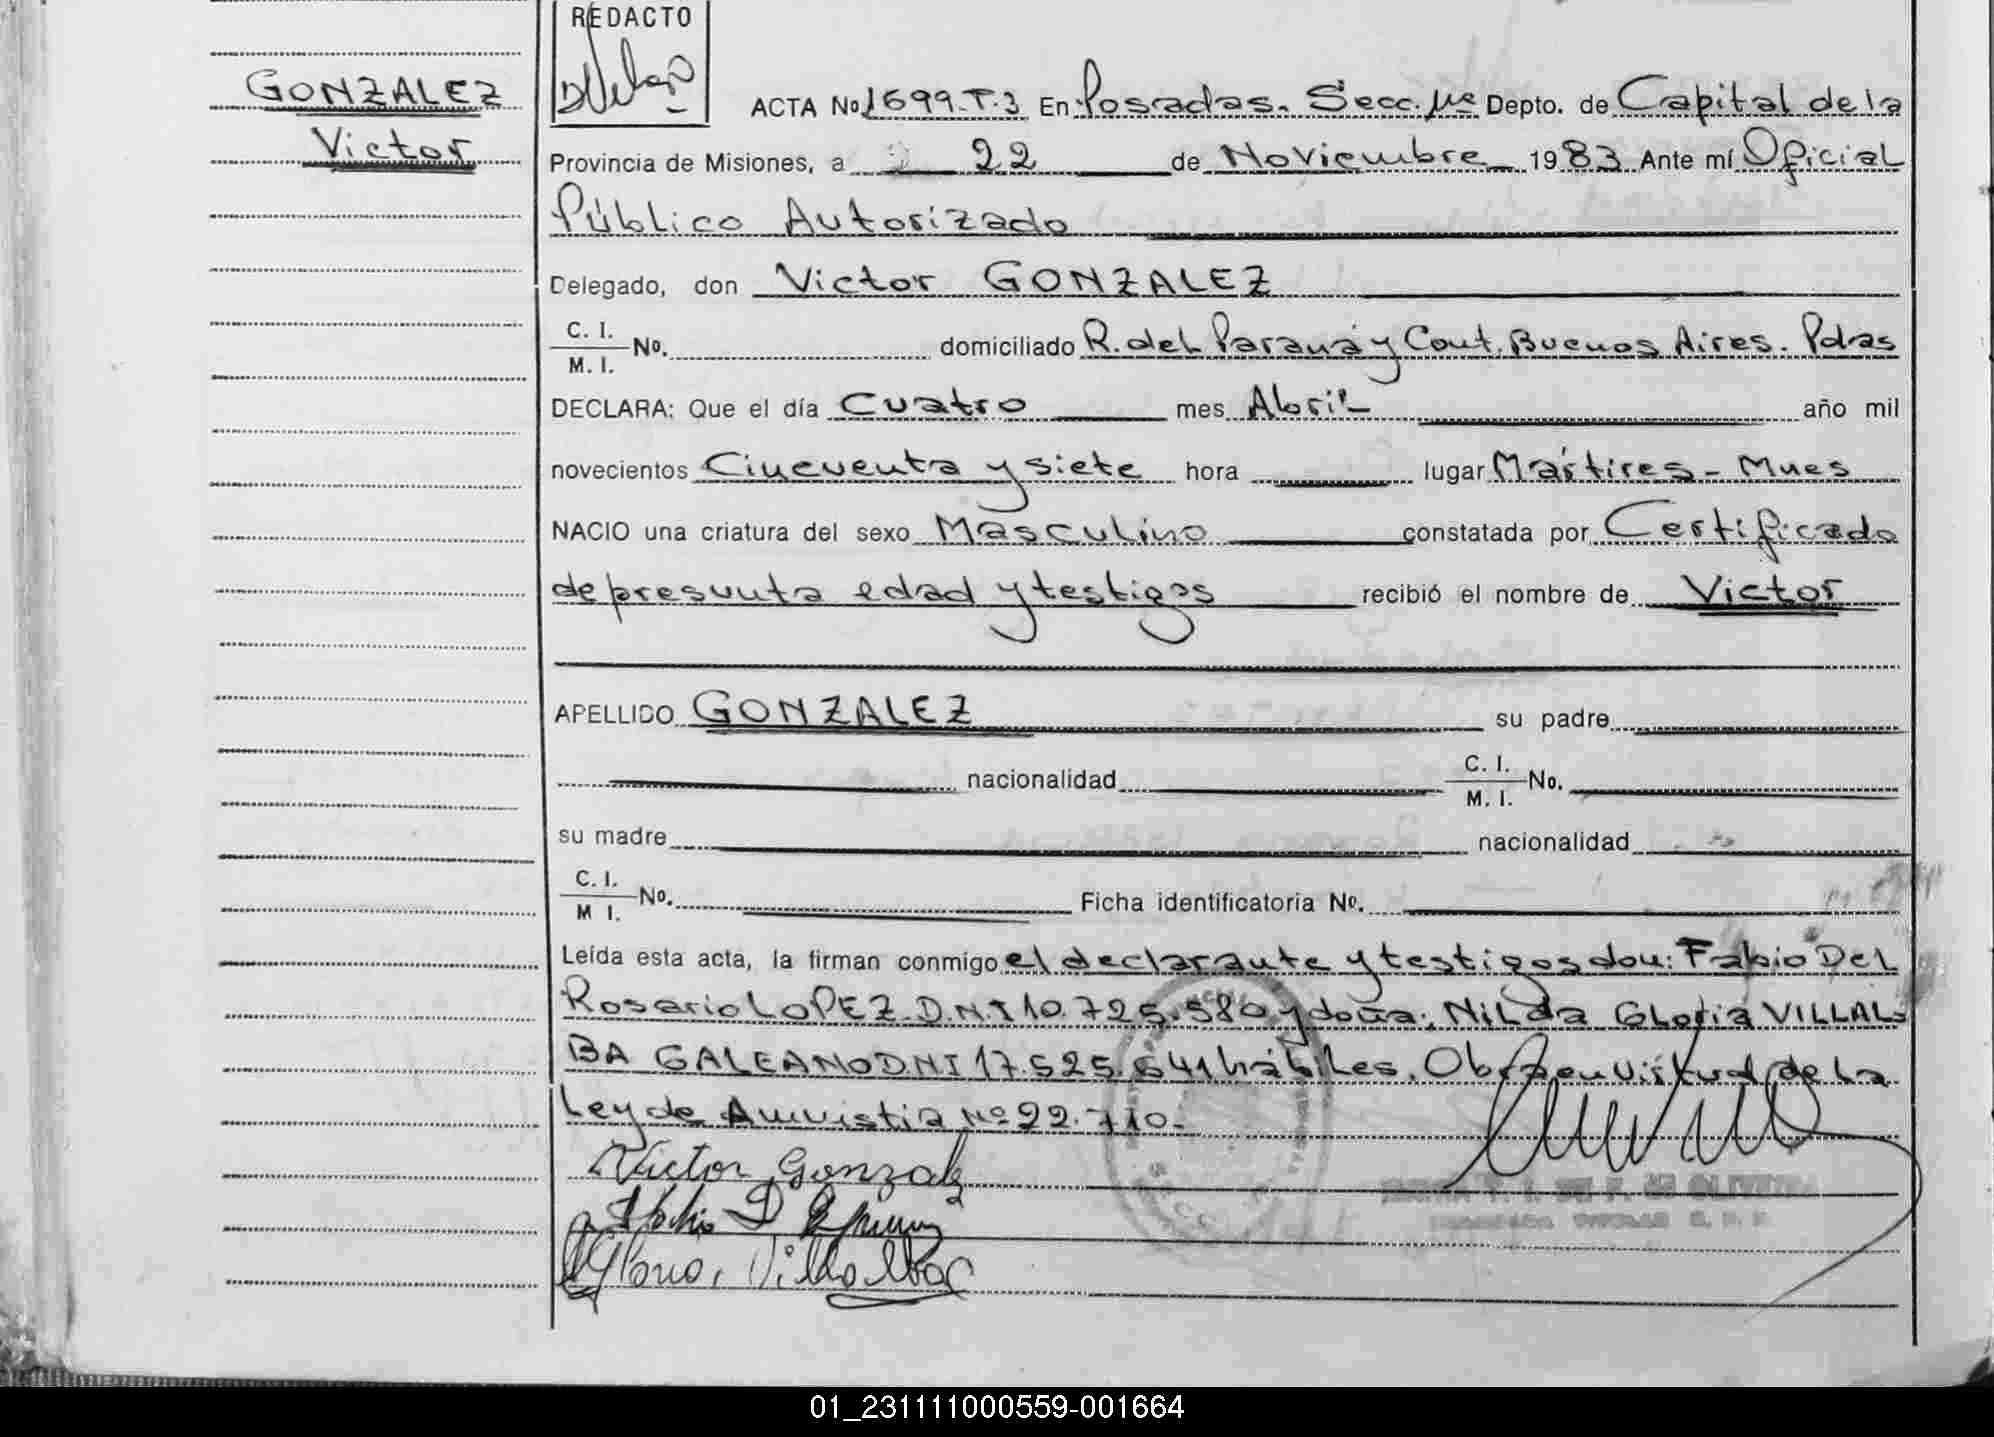 REDACTO
GONZALEZ
Victor
ACTA No 1699.T.3 En Posadas. Secc. 1ra Depto. de Capital de la
Provincia de Misiones, a 22 de Noviembre 1983 Ante mí Oficial
Público Autorizado
Delegado, don Victor GONZALEZ
C. I.
M. I. No. domiciliado R. del Paraná y Cont. Buenos Aires. Pdas
DECLARA: Que el día Cuatro mes Abril año mil
novecientos Cincuenta y siete hora lugar Mártires - Mnes
NACIO una criatura del sexo Masculino constatada por Certificado
de presunta edad y testigos recibió el nombre de Victor
APELLIDO GONZALEZ su padre
nacionalidad C. I.
M. I. No.
su madre nacionalidad
C. I.
M I. No. Ficha identificatoria No.
Leída esta acta, la firman conmigo el declarante y testigos don: Fabio Del
Rosario LOPEZ D.N.I 10.725.580 y doña: Nilda Gloria VILLAL-
BA GALEANO DNI 17.525.641 hábiles. Obra en virtud de la
Ley de Amnistia Nº 22.710.-
Victor Gonzalz
Gloria Villalba
01_231111000559-001664